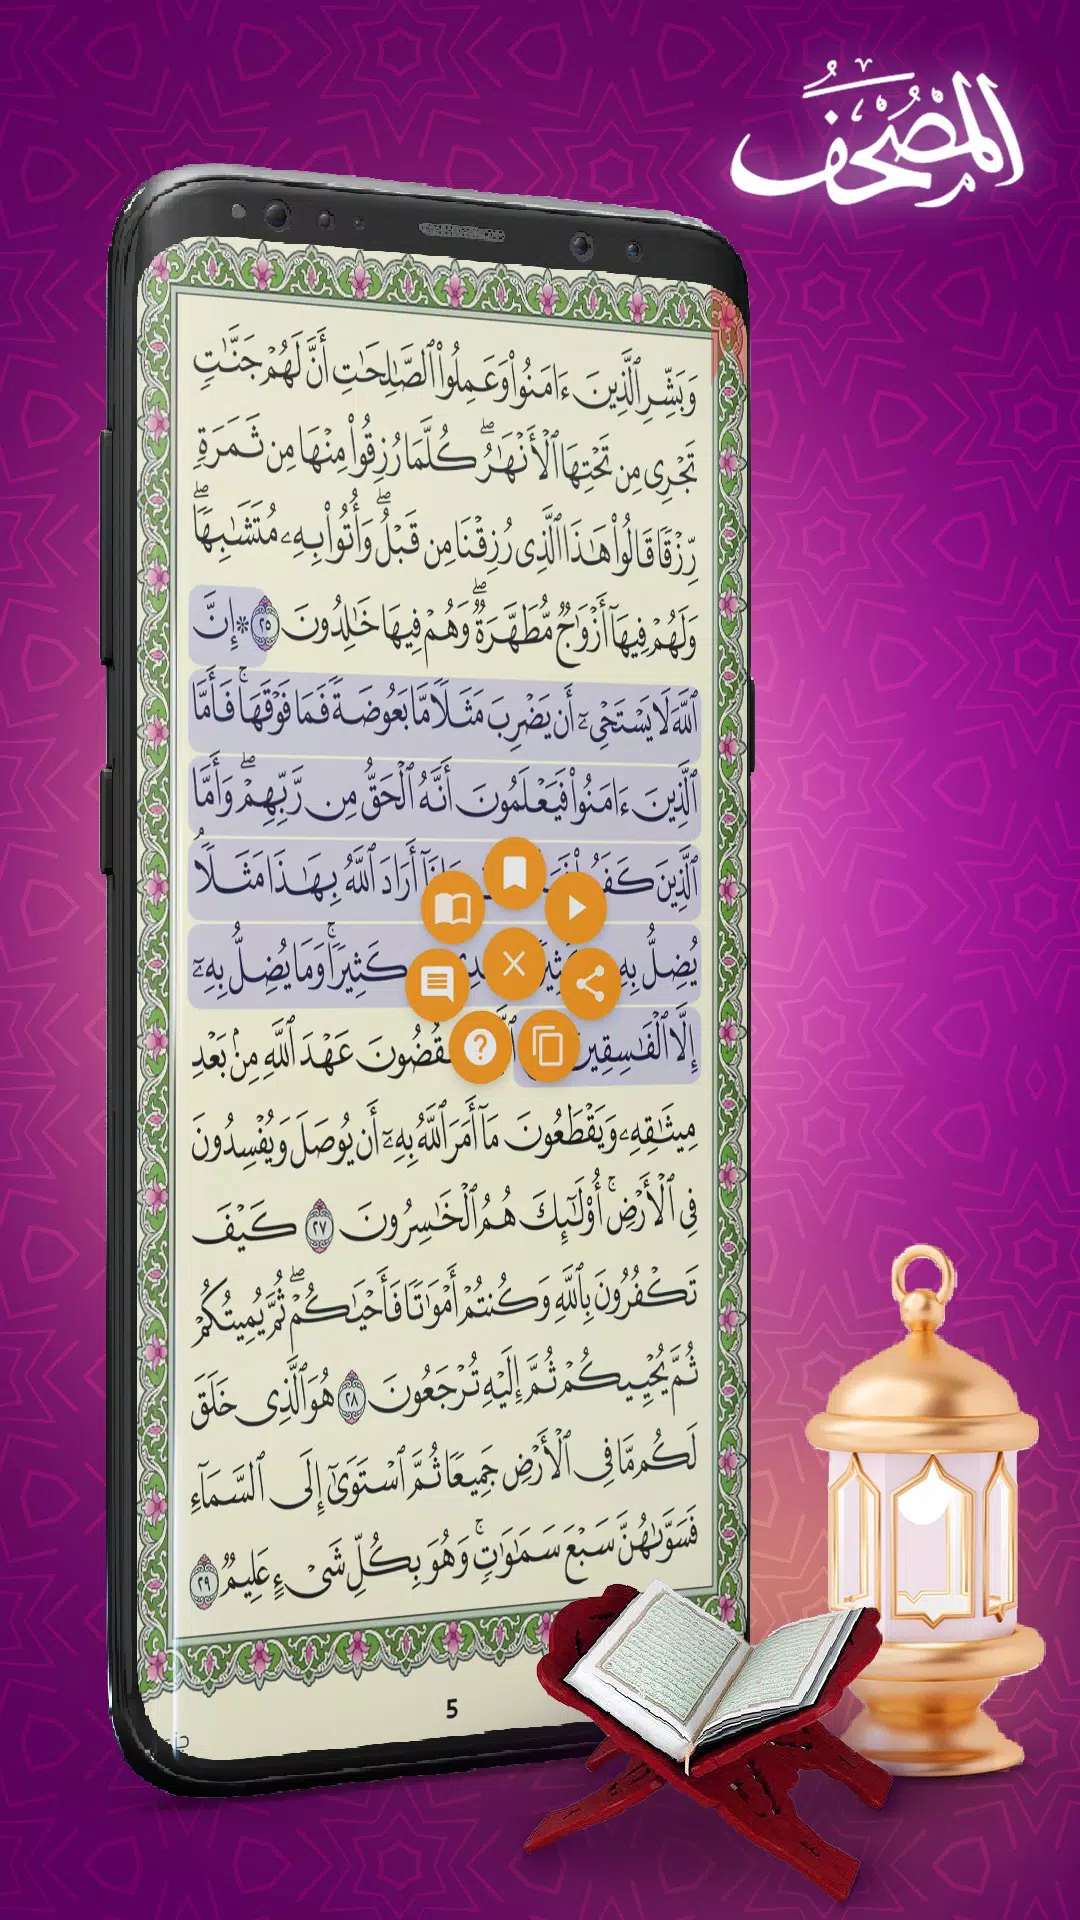 المصحف
وَبَشِّرِ ٱلَّذِينَ ءَامَنُواْ وَعَمِلُواْ ٱلصَّٰلِحَٰتِ أَنَّ لَهُمۡ جَنَّٰتٖ
تَجۡرِي مِن تَحۡتِهَا ٱلۡأَنۡهَٰرُۖ كُلَّمَا رُزِقُواْ مِنۡهَا مِن ثَمَرَةٖ
رِّزۡقٗا قَالُواْ هَٰذَا ٱلَّذِي رُزِقۡنَا مِن قَبۡلُۖ وَأُتُواْ بِهِۦ مُتَشَٰبِهٗاۖ
وَلَهُمۡ فِيهَآ أَزۡوَٰجٞ مُّطَهَّرَةٞۖ وَهُمۡ فِيهَا خَٰلِدُونَ ٢٥ ۞ إِنَّ
ٱللَّهَ لَا يَسۡتَحۡيِۦٓ أَن يَضۡرِبَ مَثَلٗا مَّا بَعُوضَةٗ فَمَا فَوۡقَهَاۚ فَأَمَّا
ٱلَّذِينَ ءَامَنُواْ فَيَعۡلَمُونَ أَنَّهُ ٱلۡحَقُّ مِن رَّبِّهِمۡۖ وَأَمَّا
ٱلَّذِينَ كَفَرُواْ أَرَادَ ٱللَّهُ بِهَٰذَا مَثَلٗاۘ
يُضِلُّ بِهِۦ كَثِيرٗاۚ وَمَا يُضِلُّ بِهِۦٓ
إِلَّا ٱلۡفَٰسِقِينَ يَنقُضُونَ عَهۡدَ ٱللَّهِ مِنۢ بَعۡدِ
مِيثَٰقِهِۦ وَيَقۡطَعُونَ مَآ أَمَرَ ٱللَّهُ بِهِۦٓ أَن يُوصَلَ وَيُفۡسِدُونَ
فِي ٱلۡأَرۡضِۚ أُوْلَٰٓئِكَ هُمُ ٱلۡخَٰسِرُونَ ٢٧ كَيۡفَ
تَكۡفُرُونَ بِٱللَّهِ وَكُنتُمۡ أَمۡوَٰتٗا فَأَحۡيَٰكُمۡۖ ثُمَّ يُمِيتُكُمۡ
ثُمَّ يُحۡيِيكُمۡ ثُمَّ إِلَيۡهِ تُرۡجَعُونَ ٢٨ هُوَ ٱلَّذِي خَلَقَ
لَكُم مَّا فِي ٱلۡأَرۡضِ جَمِيعٗا ثُمَّ ٱسۡتَوَىٰٓ إِلَى ٱلسَّمَآءِ
فَسَوَّىٰهُنَّ سَبۡعَ سَمَٰوَٰتٖۚ وَهُوَ بِكُلِّ شَيۡءٍ عَلِيمٞ ٢٩
5